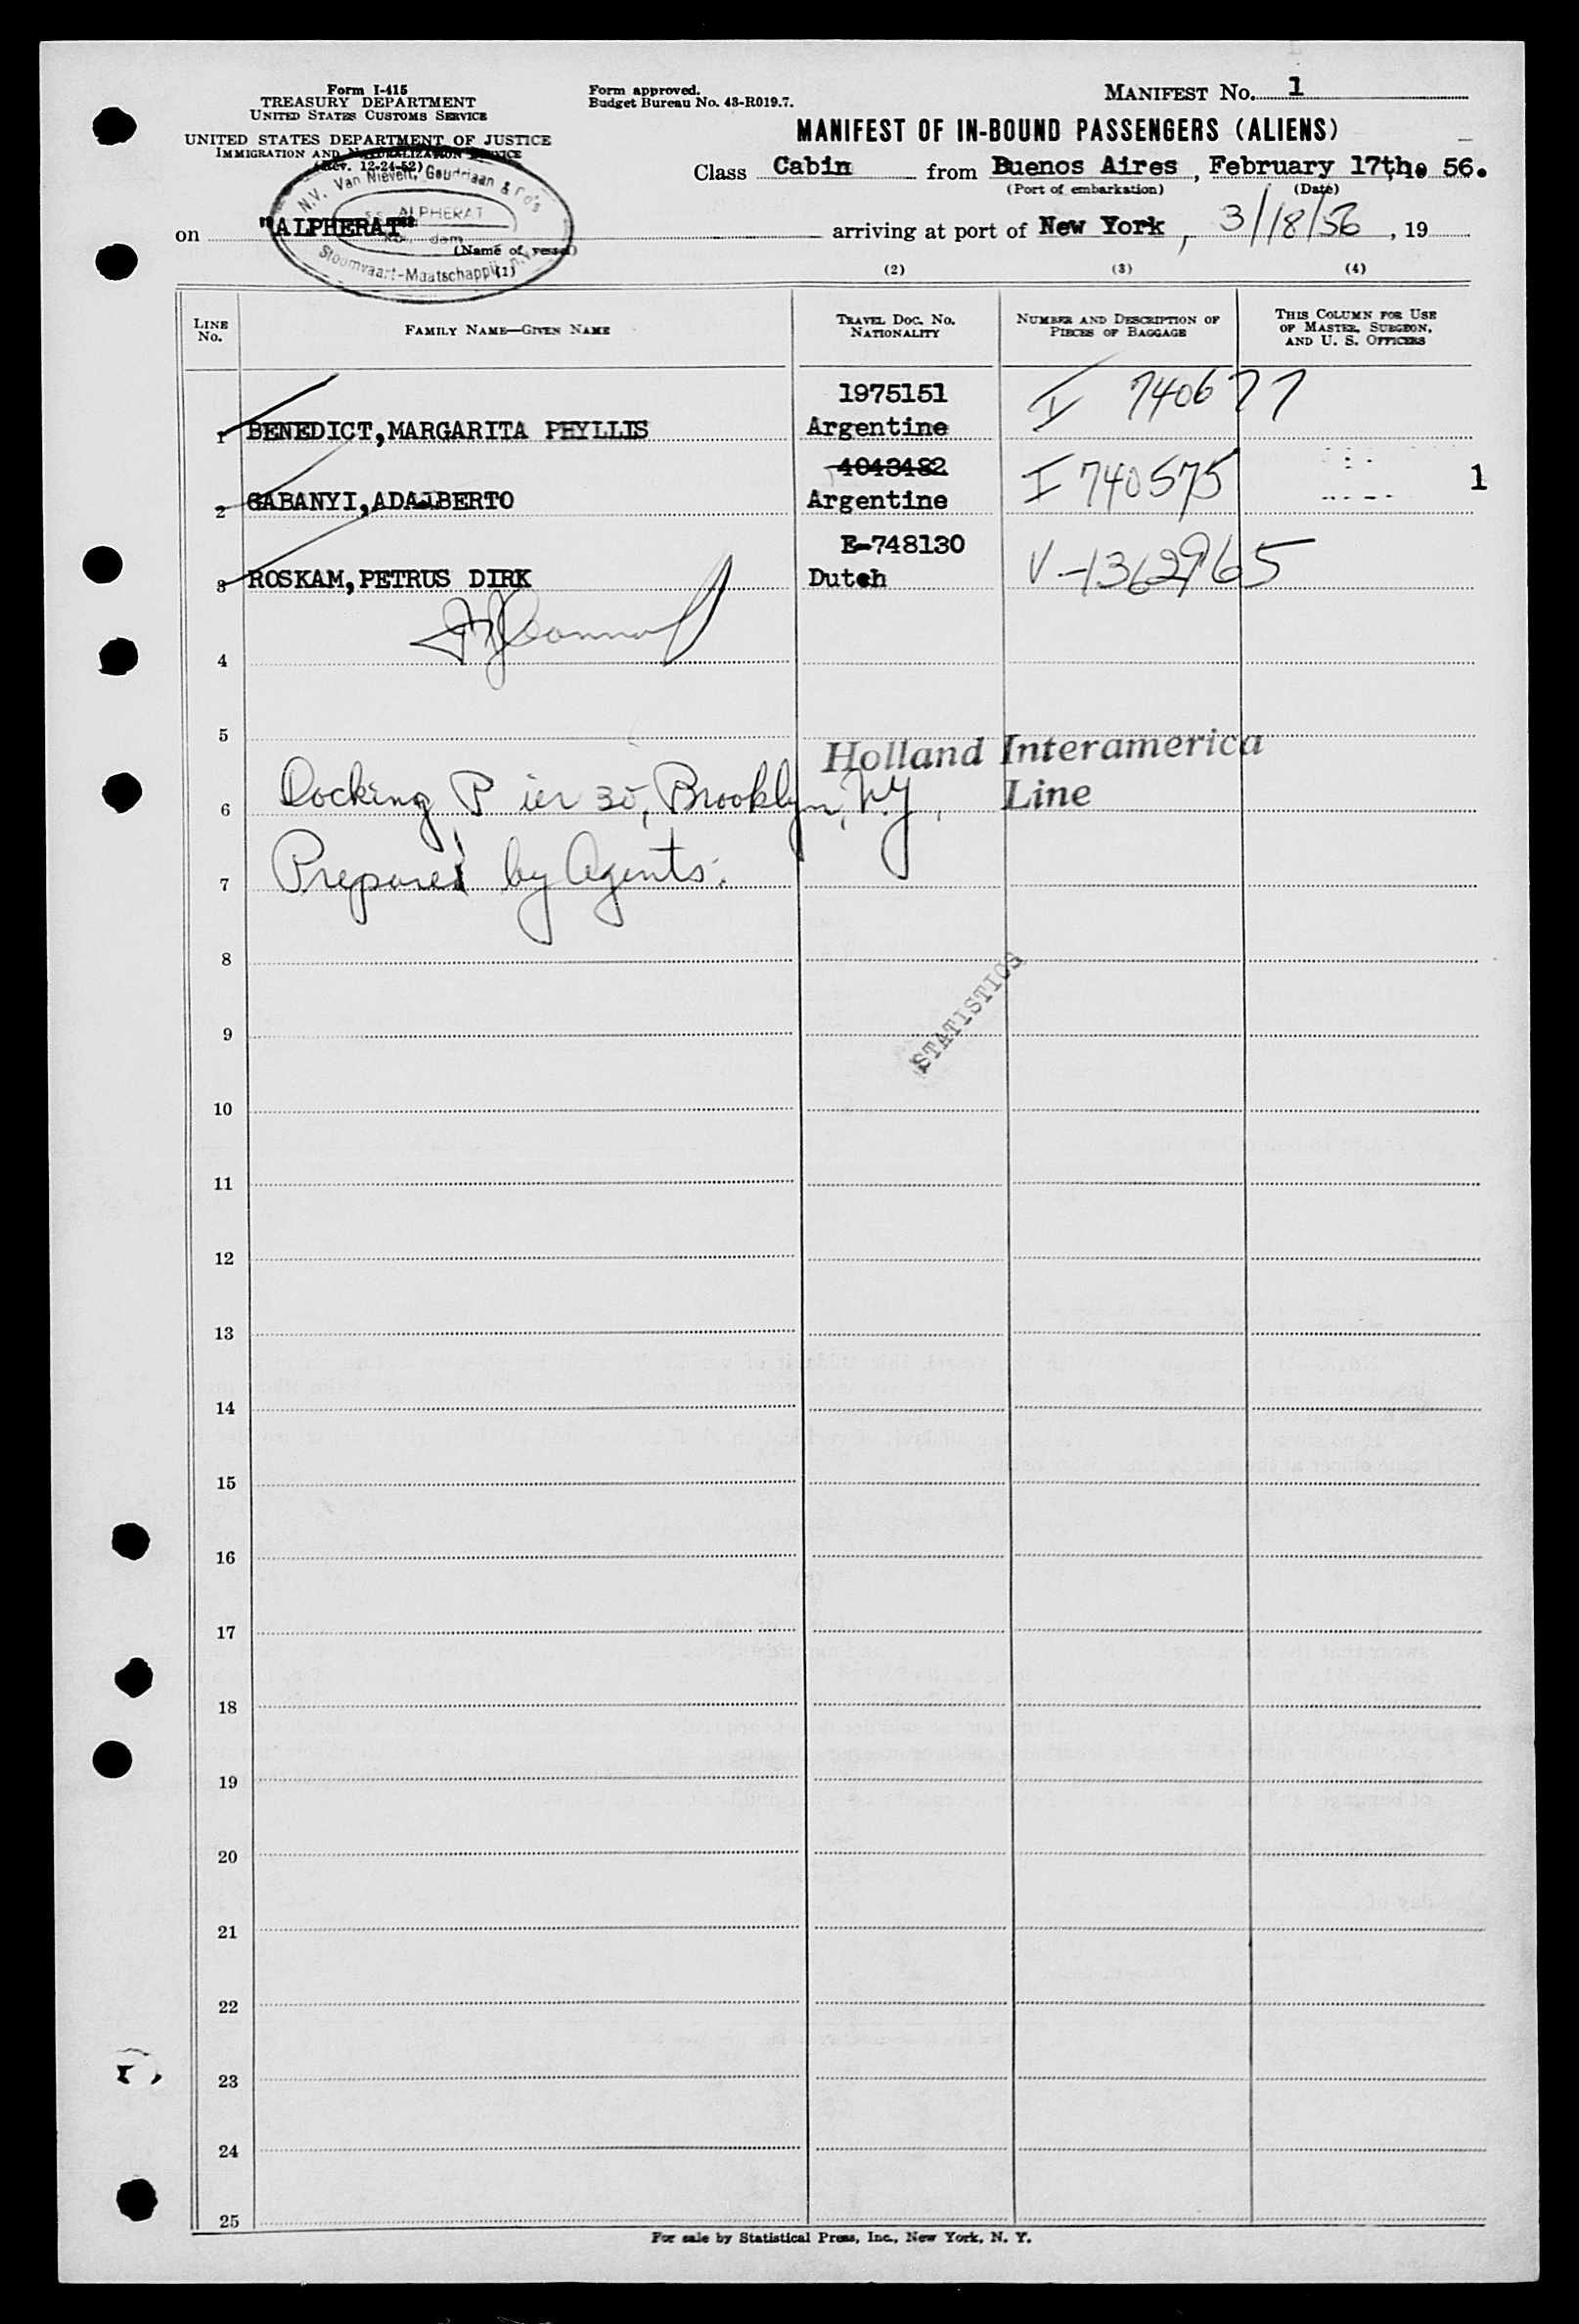 Form I-415
TREASURY DEPARTMENT
UNITED STATES CUSTOMS SERVICE
UNITED STATES DEPARTMENT OF JUSTICE
IMMIGRATION AND NATURALIZATION SERVICE
(Rev. 12-24-52)
Form approved.
Budget Bureau No. 43-R019.7.
MANIFEST No. 1
MANIFEST OF IN-BOUND PASSENGERS (ALIENS)
Class Cabin from Buenos Aires, February 17th. 56.
(Port of embarkation) (Date)
N.V. Van Nievelt, Goudriaan & Co's
ALPHERAT
Stoomvaart-Maatschappij
on "ALPHERAT" arriving at port of New York, 3/18/56, 19
(Name of vessel)
(1) (2) (3) (4)
LINE No. FAMILY NAME—GIVEN NAME TRAVEL DOC. NO. NATIONALITY NUMBER AND DESCRIPTION OF PIECES OF BAGGAGE THIS COLUMN FOR USE OF MASTER, SURGEON, AND U. S. OFFICERS
1975151
1 BENEDICT,MARGARITA PHYLLIS Argentine I 740677
4043482
2 GABANYI,ADALBERTO Argentine I 740575 1
E-748130
3 ROSKAM,PETRUS DIRK Dutch V-1362965
4
5
Holland Interamerica
Line
6 Docking Pier 30, Brooklyn, N.Y.
7 Prepared by Agents.
8
STATISTICS
9
10
11
12
13
14
15
16
17
18
19
20
21
22
23
24
25
For sale by Statistical Press, Inc., New York, N. Y.